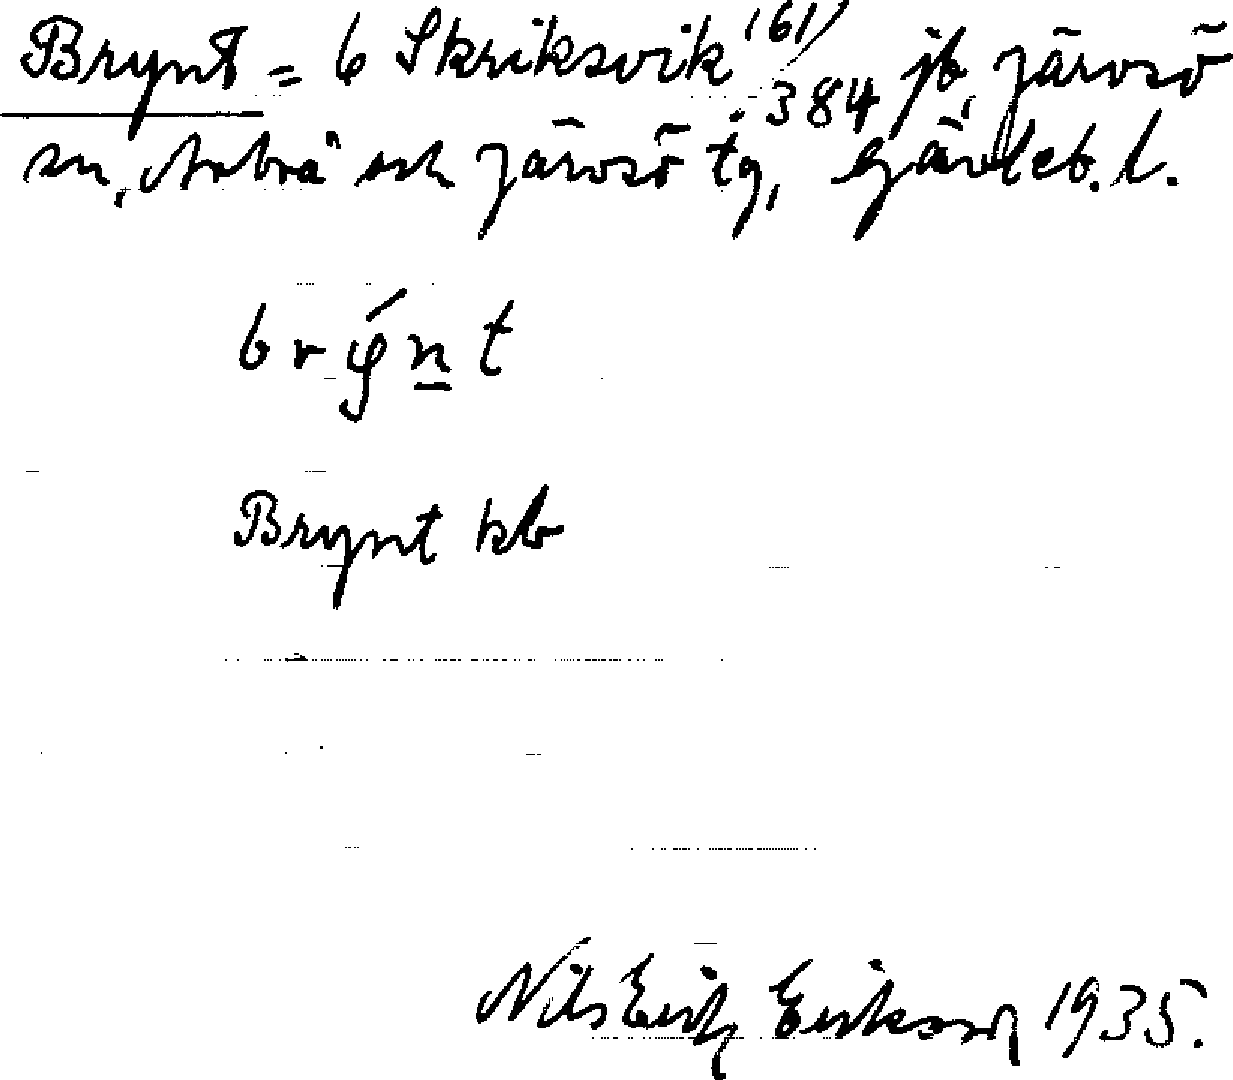 Brynt = 6 Skriksvik (61) 384 jb, Järvsö
sn, Arbrå och Järvsö tg, Gävleb. l.
brýn̲t
Brynt kb
Nils Erik Eriksson 1935.